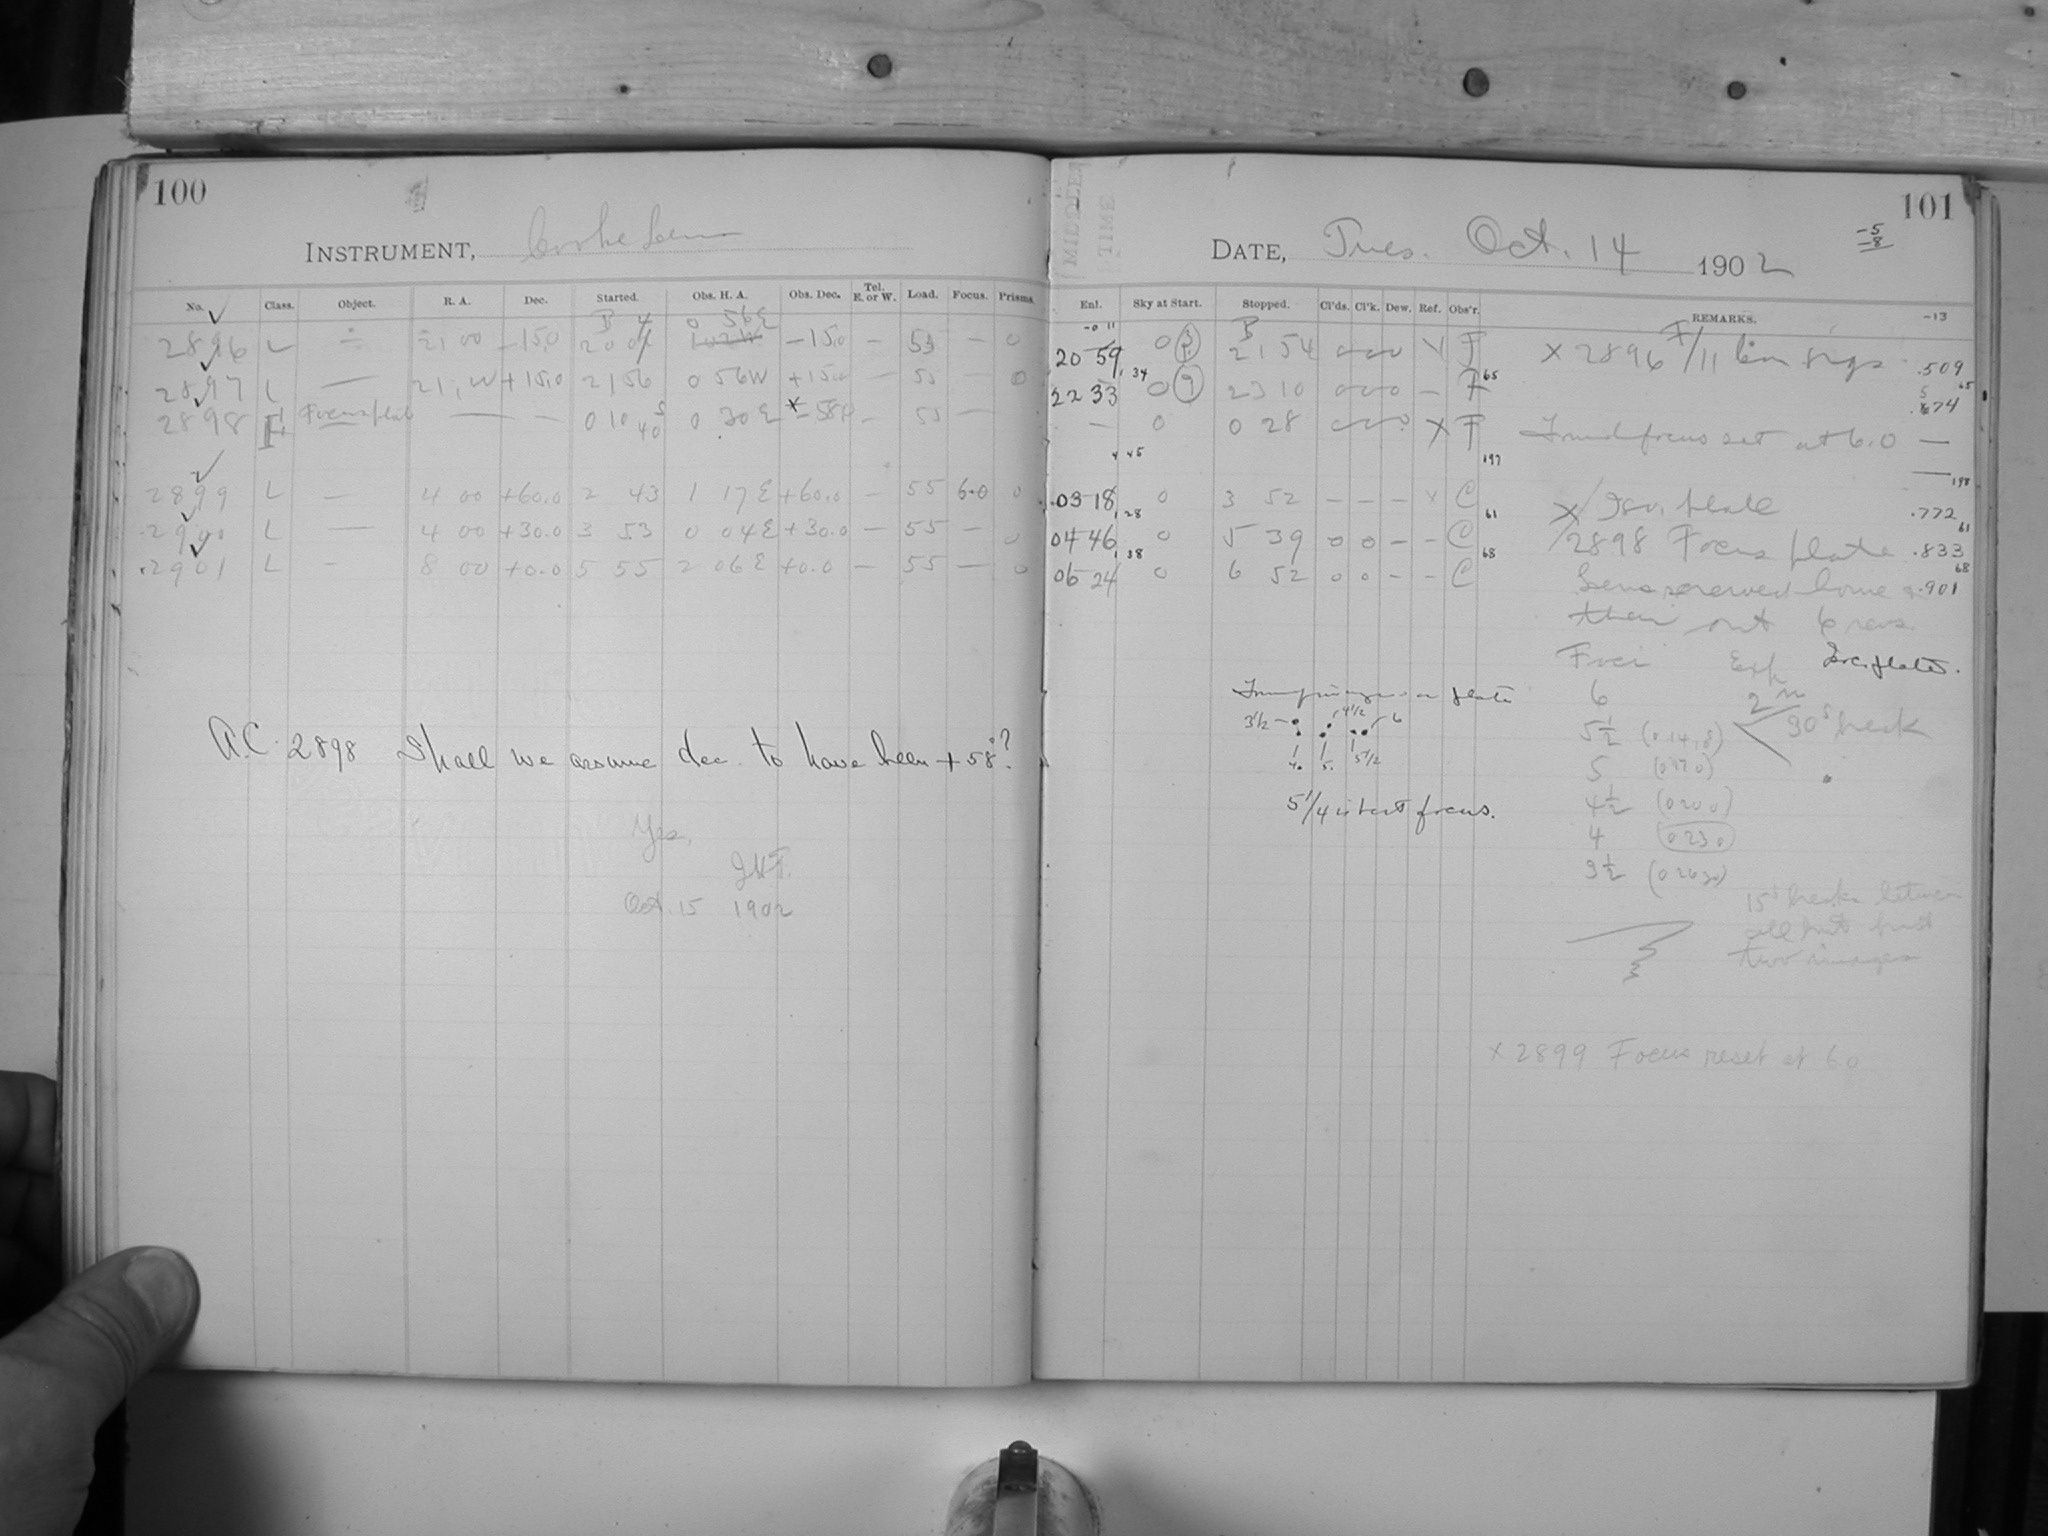 100
INSTRUMENT, Cooke Lens
No. Class. Object. R. A. Dec. Started. Obs. H. A. Obs. Dec. Tel. E. or W. Load. Focus. Prisms.
2896 L 21 00 -15.0 0 56E -15.0 - 55 - 0
2897 L — +15.0 21 56 0 56W +15.0 — 55 — 0
2898 Focus plate — — 0 10 0 30E - 55 —
2899 L — 4 00 +60.0 2 43 1 17E +60.0 - 55 6.0 0
2900 L — 4 00 +30.0 3 53 0 04E +30.0 — 55 — 0
2901 L - 8 00 +0.0 5 55 2 06E +0.0 — 55 — 0
A.C. 2898 Shall we assume dec. to have been +58°?
Yes,
Oct. 15 1902
MIDDLE
TIME
101
-5
-8
DATE, Tues. Oct. 14 1902
Enl. Sky at Start. Stopped. Cl'ds. Cl'k. Dew. Ref. Obs'r. REMARKS. -13
20 59 0 21 54 F × 2896 .509
34 65 65
22 33 0 9 23 10 0 0 0 - F
— 0 0 28 × F Found focus set at 6.0 —
45 197
198
03 18 0 3 52 - - - × C × Iso. plate .772
28 61 61
04 46 0 5 39 0 0 - - C 2898 Focus plate .833
38 68 68
06 24 0 6 52 0 0 - - C Lens screwed home & .901
then out 6 revs.
Foci Exp Iso. plate.
6 2m
5½ 30s break
5
4½
4 (0230)
3½
15s breaks between
all but first
two images
images on plate
3½ 4½ 6
4. 5. 5½
5¼ is best focus.
× 2899 Focus reset at 6.0